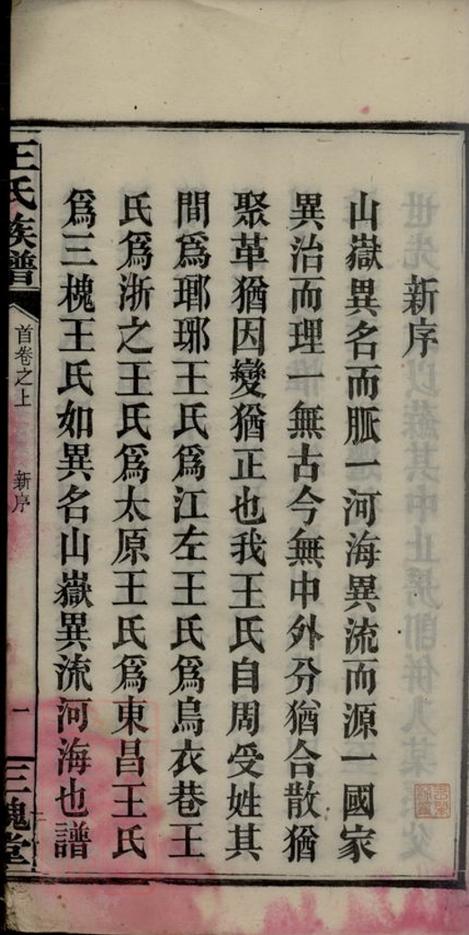 新序
山嶽異名而脈一河海異流而源一國家
異治而理一無古今無中外分猶合散猶
聚革猶因變猶正也我王氏自周受姓其
間爲瑯琊王氏爲江左王氏爲烏衣巷王
氏爲浙之王氏爲太原王氏爲東昌王氏
爲三槐王氏如異名山嶽異流河海也譜
王氏族譜
首卷之上
新序
一
三槐堂